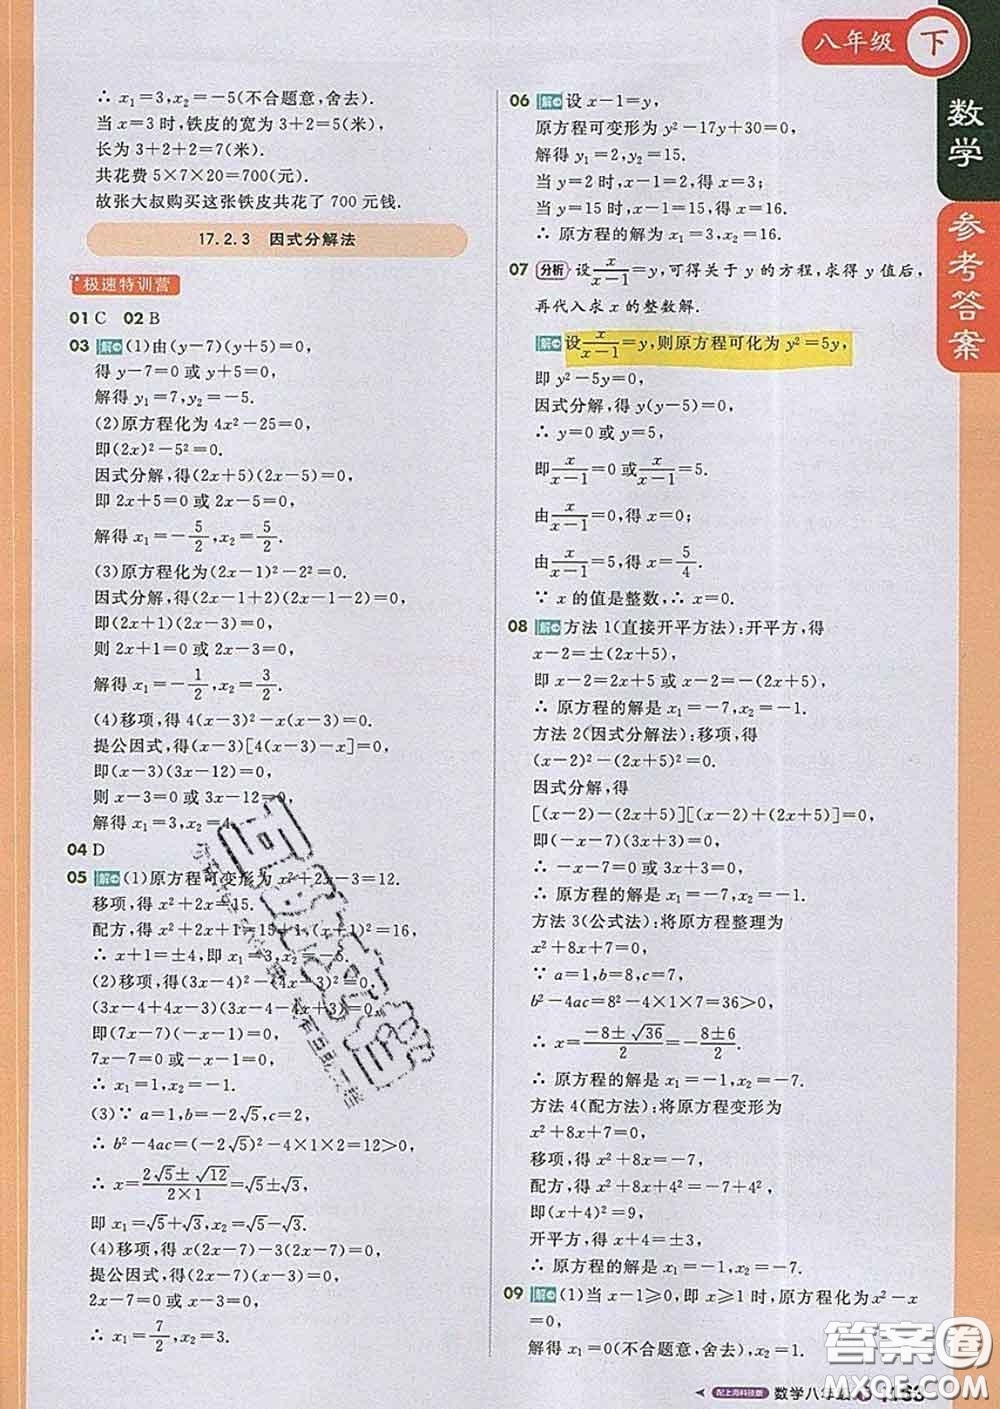 八年级 下
数学
参考答案
∴ x₁=3,x₂=-5(不合题意,舍去).
当 x=3时,铁皮的宽为 3+2=5(米),
长为 3+2+2=7(米).
共花费 5×7×20=700(元).
故张大叔购买这张铁皮共花了 700 元钱.
17.2.3 因式分解法
极速特训营
01 C 02 B
03 解 (1)由(y-7)(y+5)=0,
得 y-7=0 或 y+5=0,
解得 y₁=7,y₂=-5.
(2)原方程化为 4x²-25=0,
即(2x)²-5²=0.
因式分解,得(2x+5)(2x-5)=0,
即 2x+5=0 或 2x-5=0,
解得 x₁=-5/2,x₂=5/2.
(3)原方程化为(2x-1)²-2²=0.
因式分解,得(2x-1+2)(2x-1-2)=0,
即(2x+1)(2x-3)=0,
则 2x+1=0 或 2x-3=0,
解得 x₁=-1/2,x₂=3/2.
(4)移项,得 4(x-3)²-x(x-3)=0.
提公因式,得(x-3)[4(x-3)-x]=0,
即(x-3)(3x-12)=0,
则 x-3=0 或 3x-12=0,
解得 x₁=3,x₂=4.
04 D
05 解 (1)原方程可变形为 x²+2x-3=12.
移项,得 x²+2x=15.
配方,得 x²+2x+1=15+1,(x+1)²=16,
∴ x+1=±4,即 x₁=3,x₂=-5.
(2)移项,得(3x-4)²-(4x-3)²=0,
(3x-4+4x-3)(3x-4-4x+3)=0,
即(7x-7)(-x-1)=0,
7x-7=0 或 -x-1=0,
∴ x₁=1,x₂=-1.
(3)∵ a=1,b=-2√5,c=2,
∴ b²-4ac=(-2√5)²-4×1×2=12>0,
∴ x=(2√5±√12)/(2×1)=√5±√3,
即 x₁=√5+√3,x₂=√5-√3.
(4)移项,得 x(2x-7)-3(2x-7)=0,
提公因式,得(2x-7)(x-3)=0,
2x-7=0 或 x-3=0,
∴ x₁=7/2,x₂=3.
06 解 设 x-1=y,
原方程可变形为 y²-17y+30=0,
解得 y₁=2,y₂=15.
当 y=2 时,x-1=2,得 x=3;
当 y=15 时,x-1=15,得 x=16.
∴ 原方程的解为 x₁=3,x₂=16.
07 分析 设x/(x-1)=y,可得关于 y 的方程,求得 y 值后,
再代入求 x 的整数解.
解 设x/(x-1)=y,则原方程可化为 y²=5y,
即 y²-5y=0,
因式分解,得 y(y-5)=0,
∴ y=0 或 y=5,
即x/(x-1)=0 或x/(x-1)=5.
由x/(x-1)=0,得 x=0;
由x/(x-1)=5,得 x=5/4.
∵ x 的值是整数,∴ x=0.
08 解 方法 1(直接开平方法):开平方,得
x-2=±(2x+5),
即 x-2=2x+5 或 x-2=-(2x+5),
∴ 原方程的解是 x₁=-7,x₂=-1.
方法 2(因式分解法):移项,得
(x-2)²-(2x+5)²=0.
因式分解,得
[(x-2)-(2x+5)][(x-2)+(2x+5)]=0,
即(-x-7)(3x+3)=0,
∴ -x-7=0 或 3x+3=0,
∴ 原方程的解是 x₁=-7,x₂=-1.
方法 3(公式法):将原方程整理为
x²+8x+7=0.
∵ a=1,b=8,c=7,
b²-4ac=8²-4×1×7=36>0,
∴ x=(-8±√36)/2=(-8±6)/2.
∴ 原方程的解是 x₁=-1,x₂=-7.
方法 4(配方法):将原方程变形为
x²+8x+7=0.
移项,得 x²+8x=-7,
配方,得 x²+8x+4²=-7+4²,
即(x+4)²=9,
开平方,得 x+4=±3,
∴ 原方程的解是 x₁=-1,x₂=-7.
09 解 (1)当 x-1≥0,即 x≥1 时,原方程化为x²-x
=0,
解得 x₁=0(不合题意,舍去),x₂=1.
配上海科技版 数学八年级
答案圈